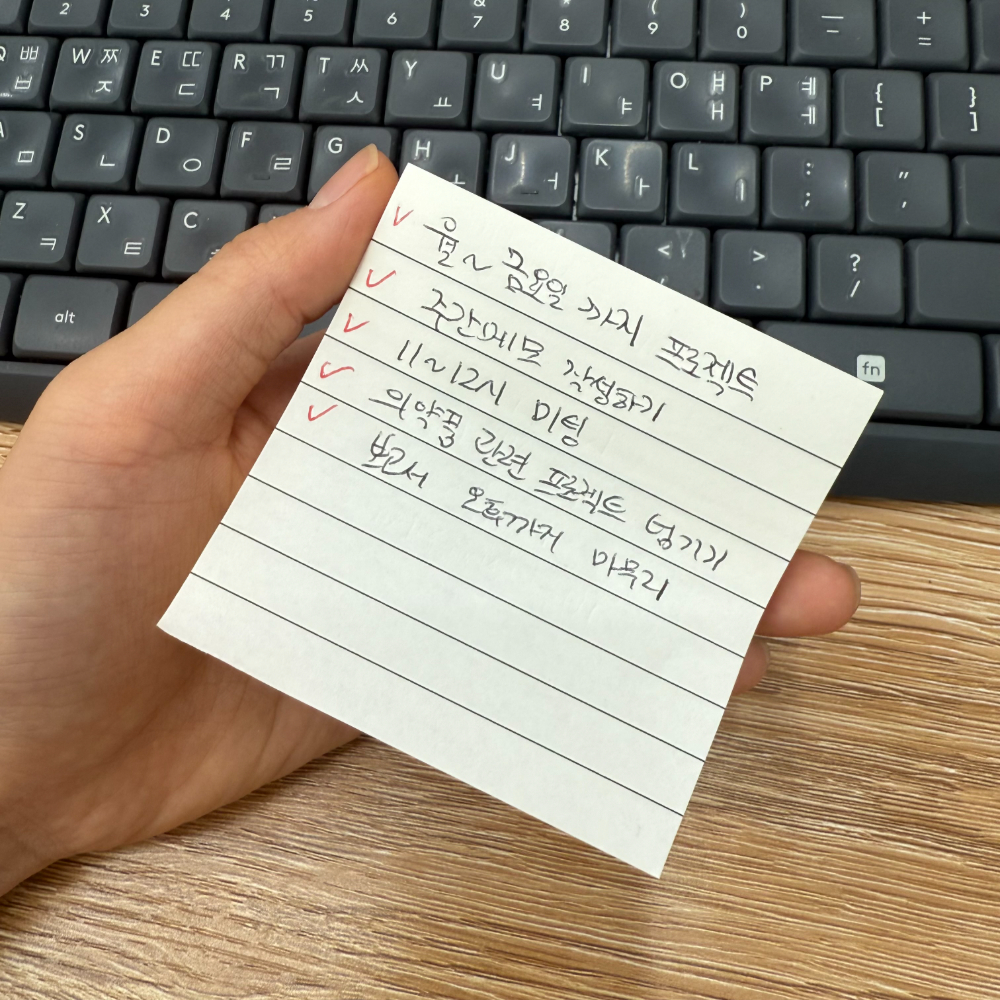 2 3 4 5 6 & 7 * 8 ( 9 ) 0 — - + =
Q ㅃ ㅂ W ㅉ ㅈ E ㄸ ㄷ R ㄲ ㄱ T ㅆ ㅅ Y ㅛ U ㅕ I ㅑ O ㅒ ㅐ P ㅖ ㅔ { [ } ]
A ㅁ S ㄴ D ㅇ F ㄹ G H ㅗ J ㅓ K ㅏ L ㅣ : ; " '
Z ㅋ X ㅌ C < , > . ? /
alt fn
✓ 월~금요일 까지 프로젝트
✓ 주간메모 작성하기
✓ 11~12시 미팅
✓ 의약품 관련 프로젝트 넘기기
✓ 보고서 오후까지 마무리